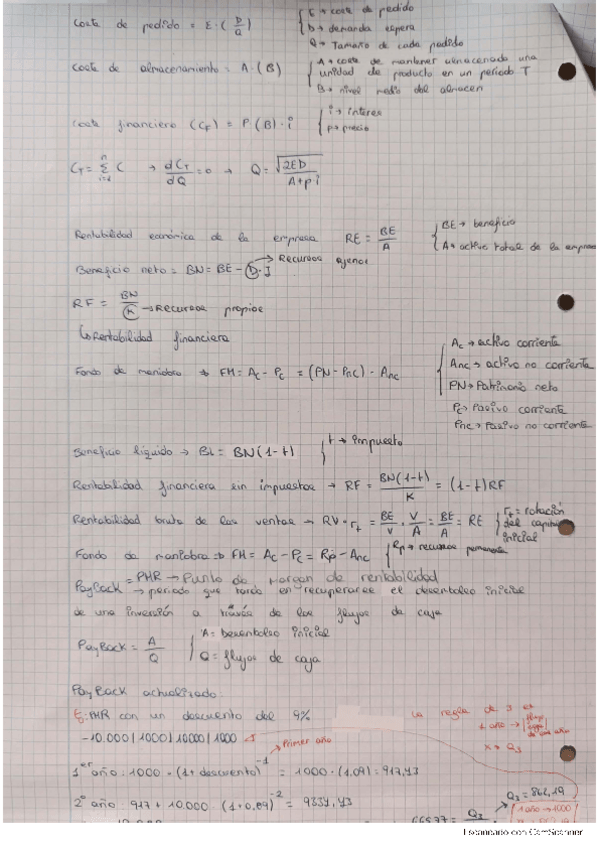 Coste de pedido = E · (D/Q) { E → coste de pedido
D → demanda espera
Q → Tamaño de cada pedido
Coste de almacenamiento = A · (B) { A → coste de mantener almacenada una
unidad de producto en un periodo T
B → nivel medio del almacen
Coste financiero (CF) = P (B) · i { i → interes
p → precio
CT = Σ C → dCT/dQ = 0 → Q = √(2ED/(A+pi))
Rentabilidad económica de la empresa RE = BE/A { BE → beneficio
A → activo total de la empresa
Beneficio neto = BN = BE - D · I → Recursos ajenos
RF = BN/K → Recursos propios
↳ Rentabilidad financiera
Fondo de maniobra ⇒ FM = Ac - Pc = (PN - Pnc) - Anc { Ac → activo corriente
Anc → activo no corriente
PN → Patrimonio neto
Pc → Pasivo corriente
Pnc → Pasivo no corriente
Beneficio líquido → BL = BN (1-t) { t → impuesto
Rentabilidad financiera sin impuestos → RF = BN(1-t)/K = (1-t)RF
Rentabilidad bruta de las ventas → RV · rt = BE/V · V/A = BE/A = RE { rt = rotación
del capital
inicial
Fondo de maniobra ⇒ FM = Ac - Pc = Rp - Anc { Rp → recursos
PayBack = PMR → Punto de margen de rentabilidad
→ periodo que tarda en recuperarse el desembolso inicial
de una inversión a través de los flujos de caja
PayBack = A/Q { A = desembolso inicial
Q = flujos de caja
PayBack actualizado:
Ej: PMR con un descuento del 9%
La regla de 3 es
1 año →
-10.000 | 1000 | 10000 | 1000
x → Q3
→ Primer año
1er año: 1000 · (1+descuento)^-1 = 1000 · (1,09) = 917,43
2º año 917 + 10.000 · (1+0,09)^-2 = 9334,43
Q3 = 862,19
1 año → 1000
Escaneado con CamScanner